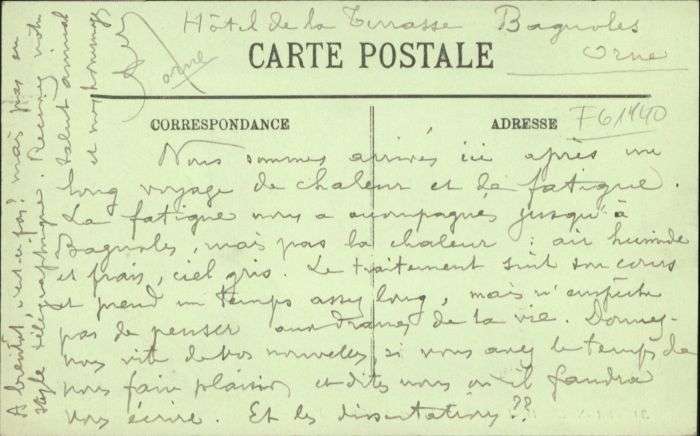 Hôtel de la Terrasse Bagnoles
Orne
CARTE POSTALE
orne
CORRESPONDANCE
ADRESSE
F61440
Nous sommes arrivés ici après un
long voyage de chaleur et de fatigue.
La fatigue nous a accompagnés jusqu'à
Bagnoles, mais pas la chaleur : air humide
et frais, ciel gris. Le traitement suit son cours
et prend un temps assez long, mais n'empêche
pas de penser aux drames de la vie. Donnez-
nous vite de vos nouvelles, si vous avez le temps de
nous faire plaisir, et dites nous où il faudra
vous écrire. Et les dissertations ??
A bientôt, n'est-ce pas? mais pas en
style télégraphique. Recevez notre
salut amical
et nos hommages